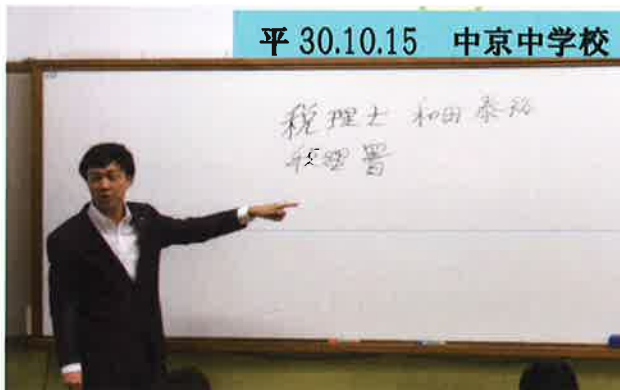 平 30.10.15 中京中学校
税理士 和田 泰
税理署